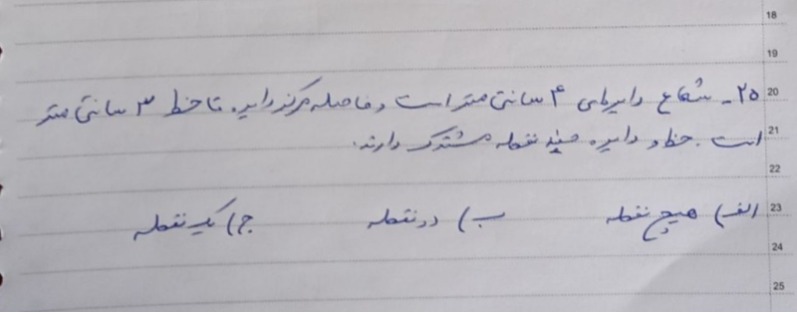 18
19
20
۲۵ـ شعاع دایره‌ای ۴ سانتی متر است و فاصله مرکز دایره تا خط ۳ سانتی متر
21
است. خط و دایره چند نقطه مشترک دارند.
22
23
الف) هیچ نقطه ب) دو نقطه ج) یک نقطه
24
25